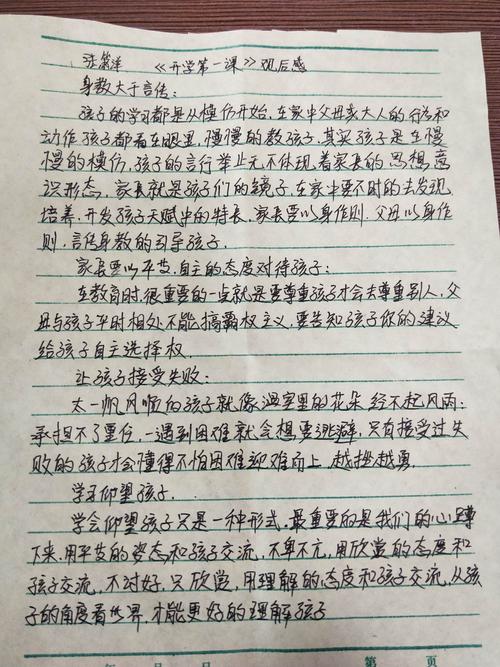 张 洋 《开学第一课》观后感
身教大于言传:
孩子的学习都是从模仿开始,在家中父母亲大人的行为和
动作孩子都看在眼里,慢慢的教孩子,其实孩子是在慢
慢的模仿,孩子的言行举止无不体现着家长的思想意
识形态,家长就是孩子们的镜子,在家中要不时的去发现
培养,开发孩子天赋中的特长,家长要以身作则,父母以身作
则,言传身教的引导孩子.
家长要以平等.自主的态度对待孩子:
在教育时,很重要的一点就是要尊重孩子才会去尊重别人,父
母与孩子平时相处不能搞霸权主义,要告知孩子你的建议
给孩子自主选择权.
让孩子接受失败:
太一帆风顺的孩子就像温室里的花朵经不起风雨;
承担不了重任,一遇到困难就会想要逃避,只有接受过失
败的孩子才会懂得不怕困难迎难而上,越挫越勇
学习仰望孩子.
学会仰望孩子只是一种形式,最重要的是我们的心蹲
下来,用平等的姿态和孩子交流,不卑不亢,用欣赏的态度和
孩子交流,不讨好,只欣赏,用理解的态度和孩子交流,从孩
子的角度看世界,才能更好的理解孩子
年 月 日 第 页